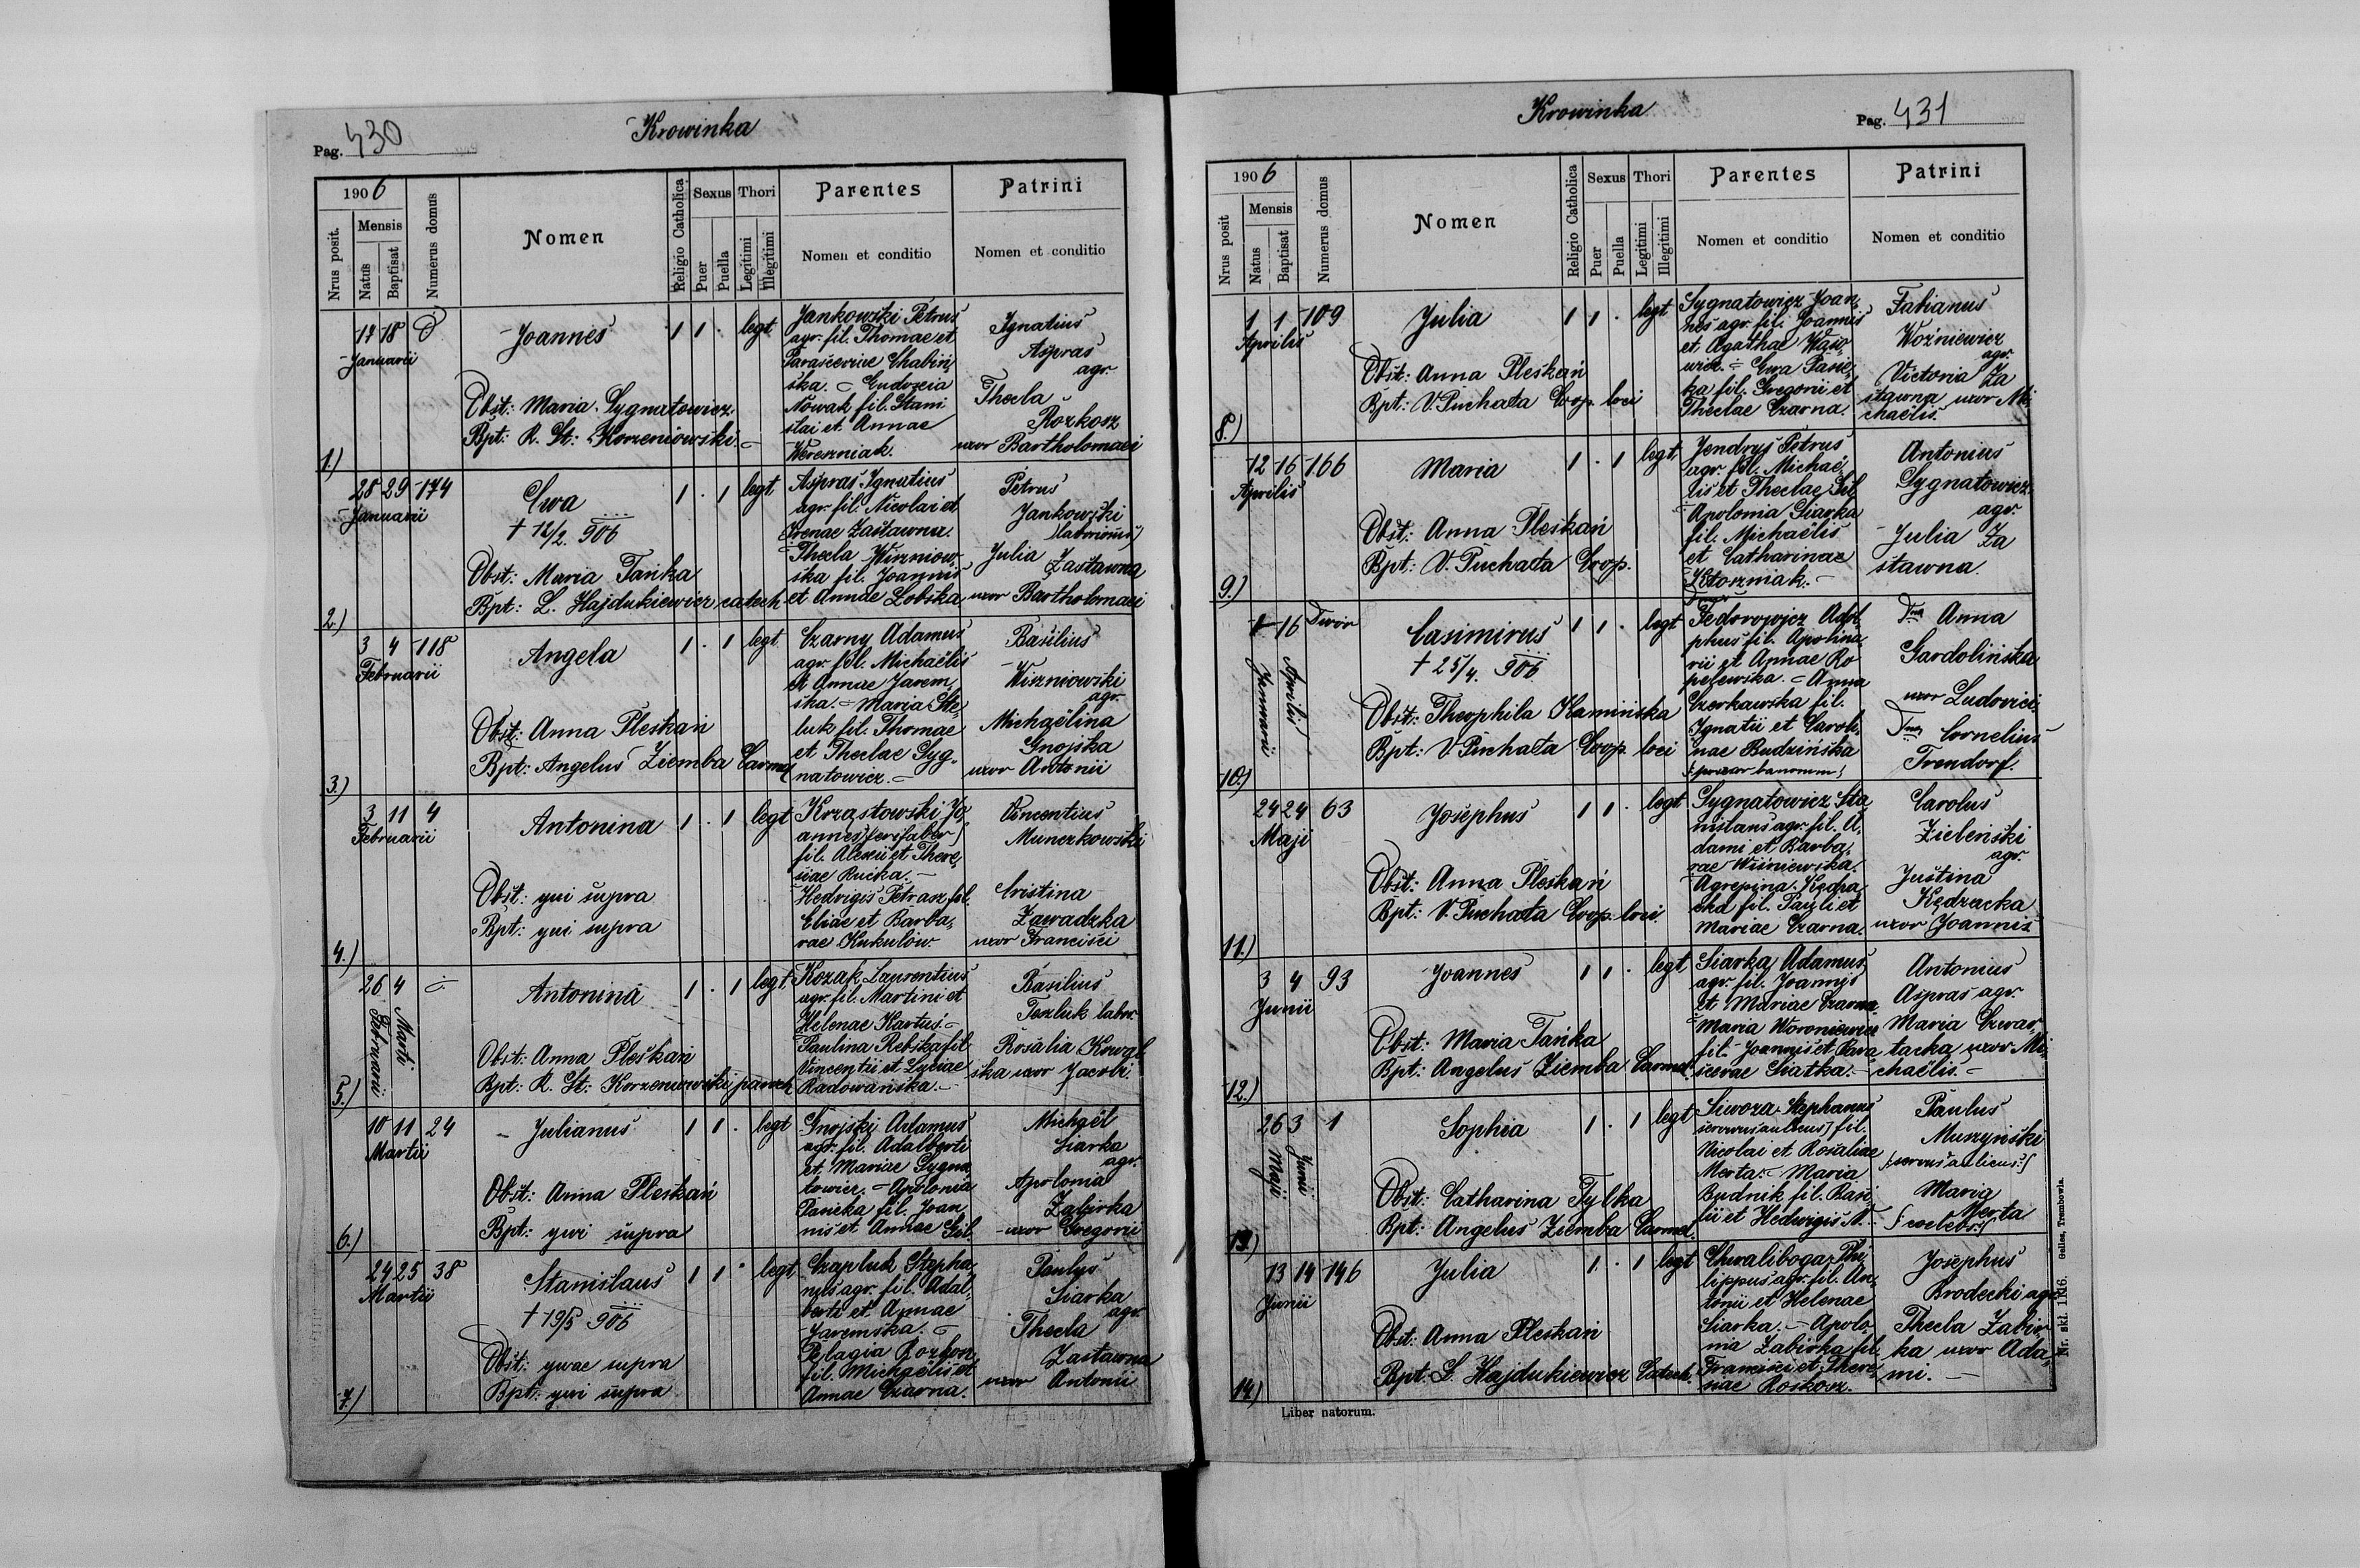 Pag. 430
Krowinka
1906
Nrus posit.
Mensis
Natus
Baptisat
Numerus domus
Nomen
Religio Catholica
Sexus
Puer
Puella
Thori
Legitimi
Illegitimi
Parentes
Nomen et conditio
Patrini
Nomen et conditio
1.)
17 18
Januarii
Joannes
1 1 . legt
Obst: Maria Sygnatowicz
Bpt: R. St: Korzeniowski
Jankowski Petrus
agr. fil. Thomae et
Parascevice Chabin
ska. Eudoxia
Nowak fil. Stani
slai et Annae
Wereszniak.
Ignatius
Aspras
agr.
Thecla
Rozkosz
uxor Bartholomaei
2.)
28 29 174
Januarii
Ewa
† 12/2. 906
1 . 1 legt
Obst: Maria Tańka
Bpt: L. Hajdukiewicz catech
Aspras Ignatius
agr. fil. Nicolai et
Irenae Zastawna.
Thecla Wiszniow
ska fil. Joannis
et Annae Lobska
Petrus
Jankowski
Julia Zastawna
uxor Bartholomaei
3.)
3 4 118
Februarii
Angela
1 . 1 legt
Obst: Anna Pleskań
Bpt: Angelus Ziemba Carmel
Czarny Adamus
agr. fil. Michaëlis
et Annae Jarem
ska. Maria Ste
luk fil. Thomae
et Theclae Syg
natowicz.
Basilius
Wiszniowski
agr.
Michaëlina
Gnojska
uxor Antonii
4.)
3 11 4
Februarii
Antonina
1 . 1 legt
Obst: qui supra
Bpt: qui supra
Krząstowski Jo
annes (ferrifaber)
fil. Alexii et There
siae Rucka.
Hedvigis Petrasz fil.
Eliae et Barba
rae Kukulów
Vincentius
Munczkowski
Cristina
Zawadzka
uxor Francisci
5.)
26 4
Februarii
Martii
Antonina
1 . 1 legt
Obst: Anna Pleskań
Bpt: R. St: Korzeniowski paroch
Kozak Laurentius
agr. fil. Martini et
Helenae Kartus.
Paulina Rebska fil
Vincentii et Luciae
Radowańska.
Basilius
Teszluk labor.
Rosalia Kowal
ska uxor Jacobi.
6.)
10 11 24
Martii
Julianus
1 1 . legt
Obst: Anna Pleskań
Bpt: qui supra
Gnojski Adamus
agr. fil. Adalberti
et Mariae Sygna
towicz. Apolonia
Panieka fil. Joan
nis et Annae Gil.
Michaël
Siarka
agr.
Apolonia
Zabirka
uxor Gregorii
7.)
24 25 38
Martii
Stanislaus
† 19/5 906
1 1 . legt
Obst: quae supra
Bpt: qui supra
Czapluk Stepha
nus agr. fil. Adal
berti et Annae
Jaremska.
Pelagia Rozkosz
fil. Michaëlis et
Annae Czarna.
Paulus
Siarka
agr.
Thecla
Zastawna
uxor Antonii
Krowinka
Pag. 431
1906
Nrus posit
Mensis
Natus
Baptisat
Numerus domus
Nomen
Religio Catholica
Sexus
Puer
Puella
Thori
Legitimi
Illegitimi
Parentes
Nomen et conditio
Patrini
Nomen et conditio
8.)
1 1 109
Aprilis
Julia
1 1 . legt
Obst: Anna Pleskań
Bpt: V. Puchata Coop. loci
Sygnatowicz Joan
nes agr. fil. Joannis
et Agathae Waw
urek. Ewa Panie
ka fil. Gregorii et
Theclae Czarna.
Fabianus
Woźniewicz
agr.
Victoria Za
stawna uxor Mi
chaëlis.
9.)
12 16 166
Aprilis
Maria
1 . 1 legt
Obst: Anna Pleskań
Bpt: V. Puchata Coop.
Jendryś Petrus
agr. fil. Michaë
lis et Theclae Gil
Apolonia Siarka
fil. Michaëlis
et Catharinae
Antonius
Sygnatowicz
agr.
Julia Za
stawna.
10)
1 16 Dwór
Januarii
Aprilis
Casimirus
† 25/4. 906
1 1 . legt
Obst: Theophila Kamińska
Bpt: V Puchata Coop. loci
Fedorowicz Adol
phus fil. Apolina
rii et Annae Ro
pelewska. Anna
Czerkawska fil.
Ignatii et Caroli
nae Budzińska
Dna Anna
Gardolińska
uxor Ludovici.
Dnus Cornelius
Trendorf.
11.)
24 24 63
Maji
Josephus
1 1 . legt
Obst: Anna Pleskań
Bpt: V. Puchata Coop. loci
Sygnatowicz Sta
nislaus agr. fil. A
dami et Barba
rae Wiśniewska.
Agrepina Kędra
cka fil. Pauli et
Mariae Czarna.
Carolus
Zieleński
agr.
Justina
Kędracka
uxor Joannis.
12.)
3 4 93
Junii
Joannes
1 1 . legt
Obst: Maria Tańka
Bpt: Angelus Ziemba Carmel.
Siarka Adamus
agr. fil. Joannis
et Mariae Czarna
Maria Woroniewicz
fil. Joannis et Para
scevae Siatka.
Antonius
Aspras agr.
Maria Czwar
tacka uxor Mi
chaëlis.
13)
26 3 1
Maji
Junii
Sophia
1 . 1 legt
Obst: Catharina Tylka
Bpt: Angelus Ziemba Carmel.
Siwoza Stephanus
servus aulicus) fil.
Nicolai et Rosaliae
Merta. Maria
Budnik fil. Basi
lii et Hedwigis N.
Paulus
Muszyński
(servus aulicus)
Maria
Merta
(coelebs)
14)
13 14 146
Junii
Julia
1 . 1 legt
Obst: Anna Pleskań
Bpt: L. Hajdukiewicz Catech.
Chwaliboga Phi
lippus agr. fil. An
tonii et Helenae
Siarka. Apolo
nia Zabirka fil
Francisci et There
siae Roskosz.
Josephus
Brodecki agr.
Thecla Zabir
ka uxor Ada
mi.
Liber natorum.
Gelles, Trembowla.